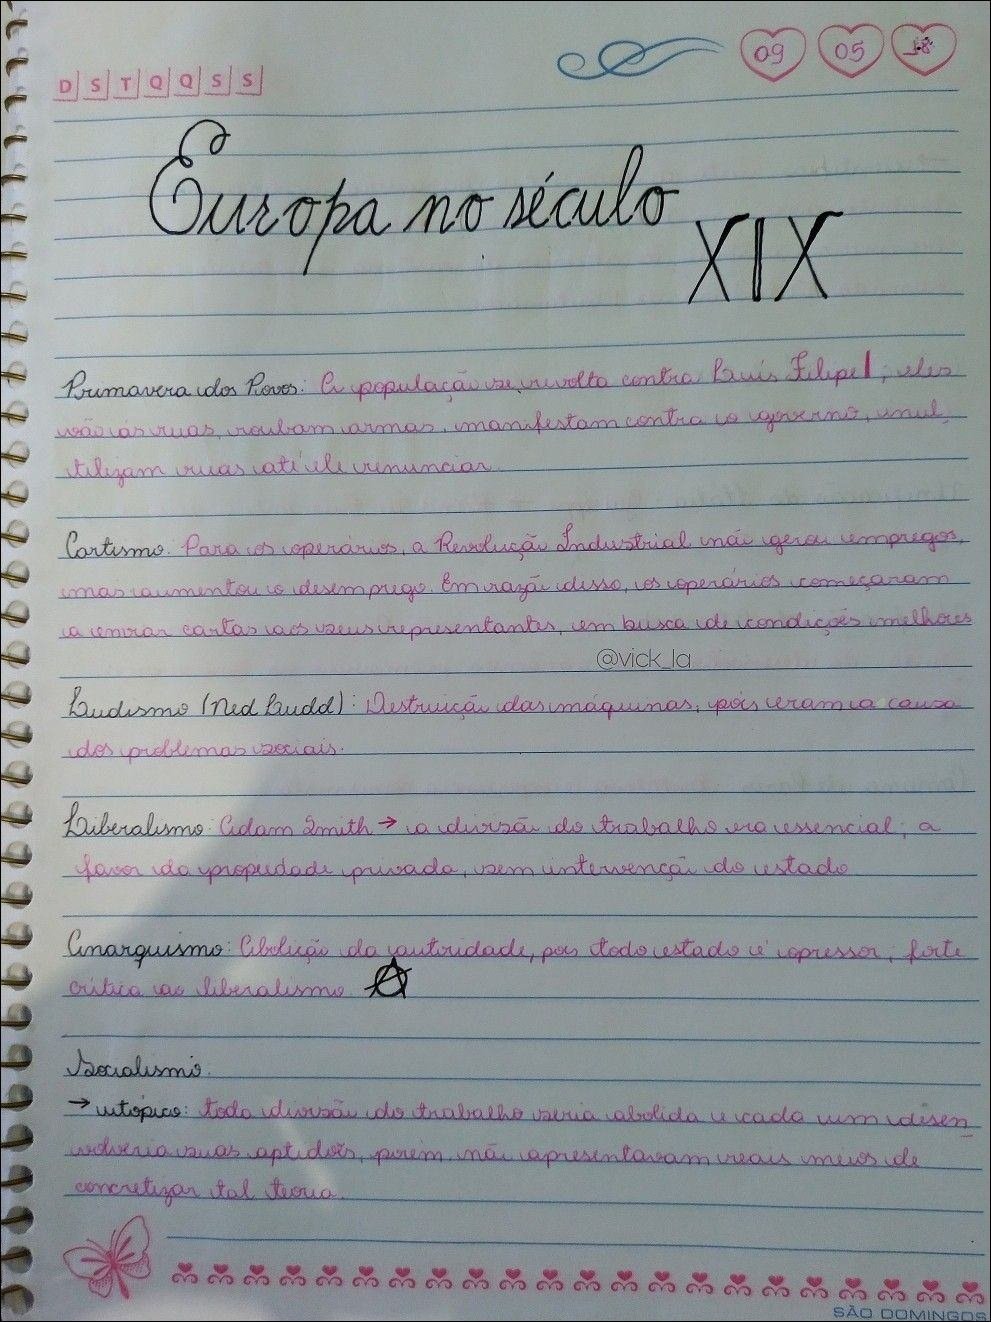 D S T Q Q S S
09 05 18
Europa no século
XIX
Primavera dos Povos: A população se revolta contra Luís Filipe I; eles
vão às ruas, roubam armas, manifestam contra o governo, inul,
tilizam ruas até ele renunciar.
Cartismo: Para os operários, a Revolução Industrial não gerou empregos,
mas aumentou o desemprego. Em razão disso, os operários começaram
a enviar cartas aos seus representantes, em busca de condições melhores
@vick_la
Ludismo (Ned Ludd): Destruição das máquinas, pois eram a causa
dos problemas sociais.
Liberalismo: Adam Smith → a divisão do trabalho era essencial; a
favor da propriedade privada, sem intervenção do estado
Anarquismo: Abolição da autoridade, pois todo estado é opressor; forte
crítica ao liberalismo.
Socialismo:
→ utópico: toda divisão do trabalho seria abolida e cada um desen
volveria suas aptidões, porém, não apresentavam reais meios de
concretizar tal teoria.
SÃO DOMINGOS